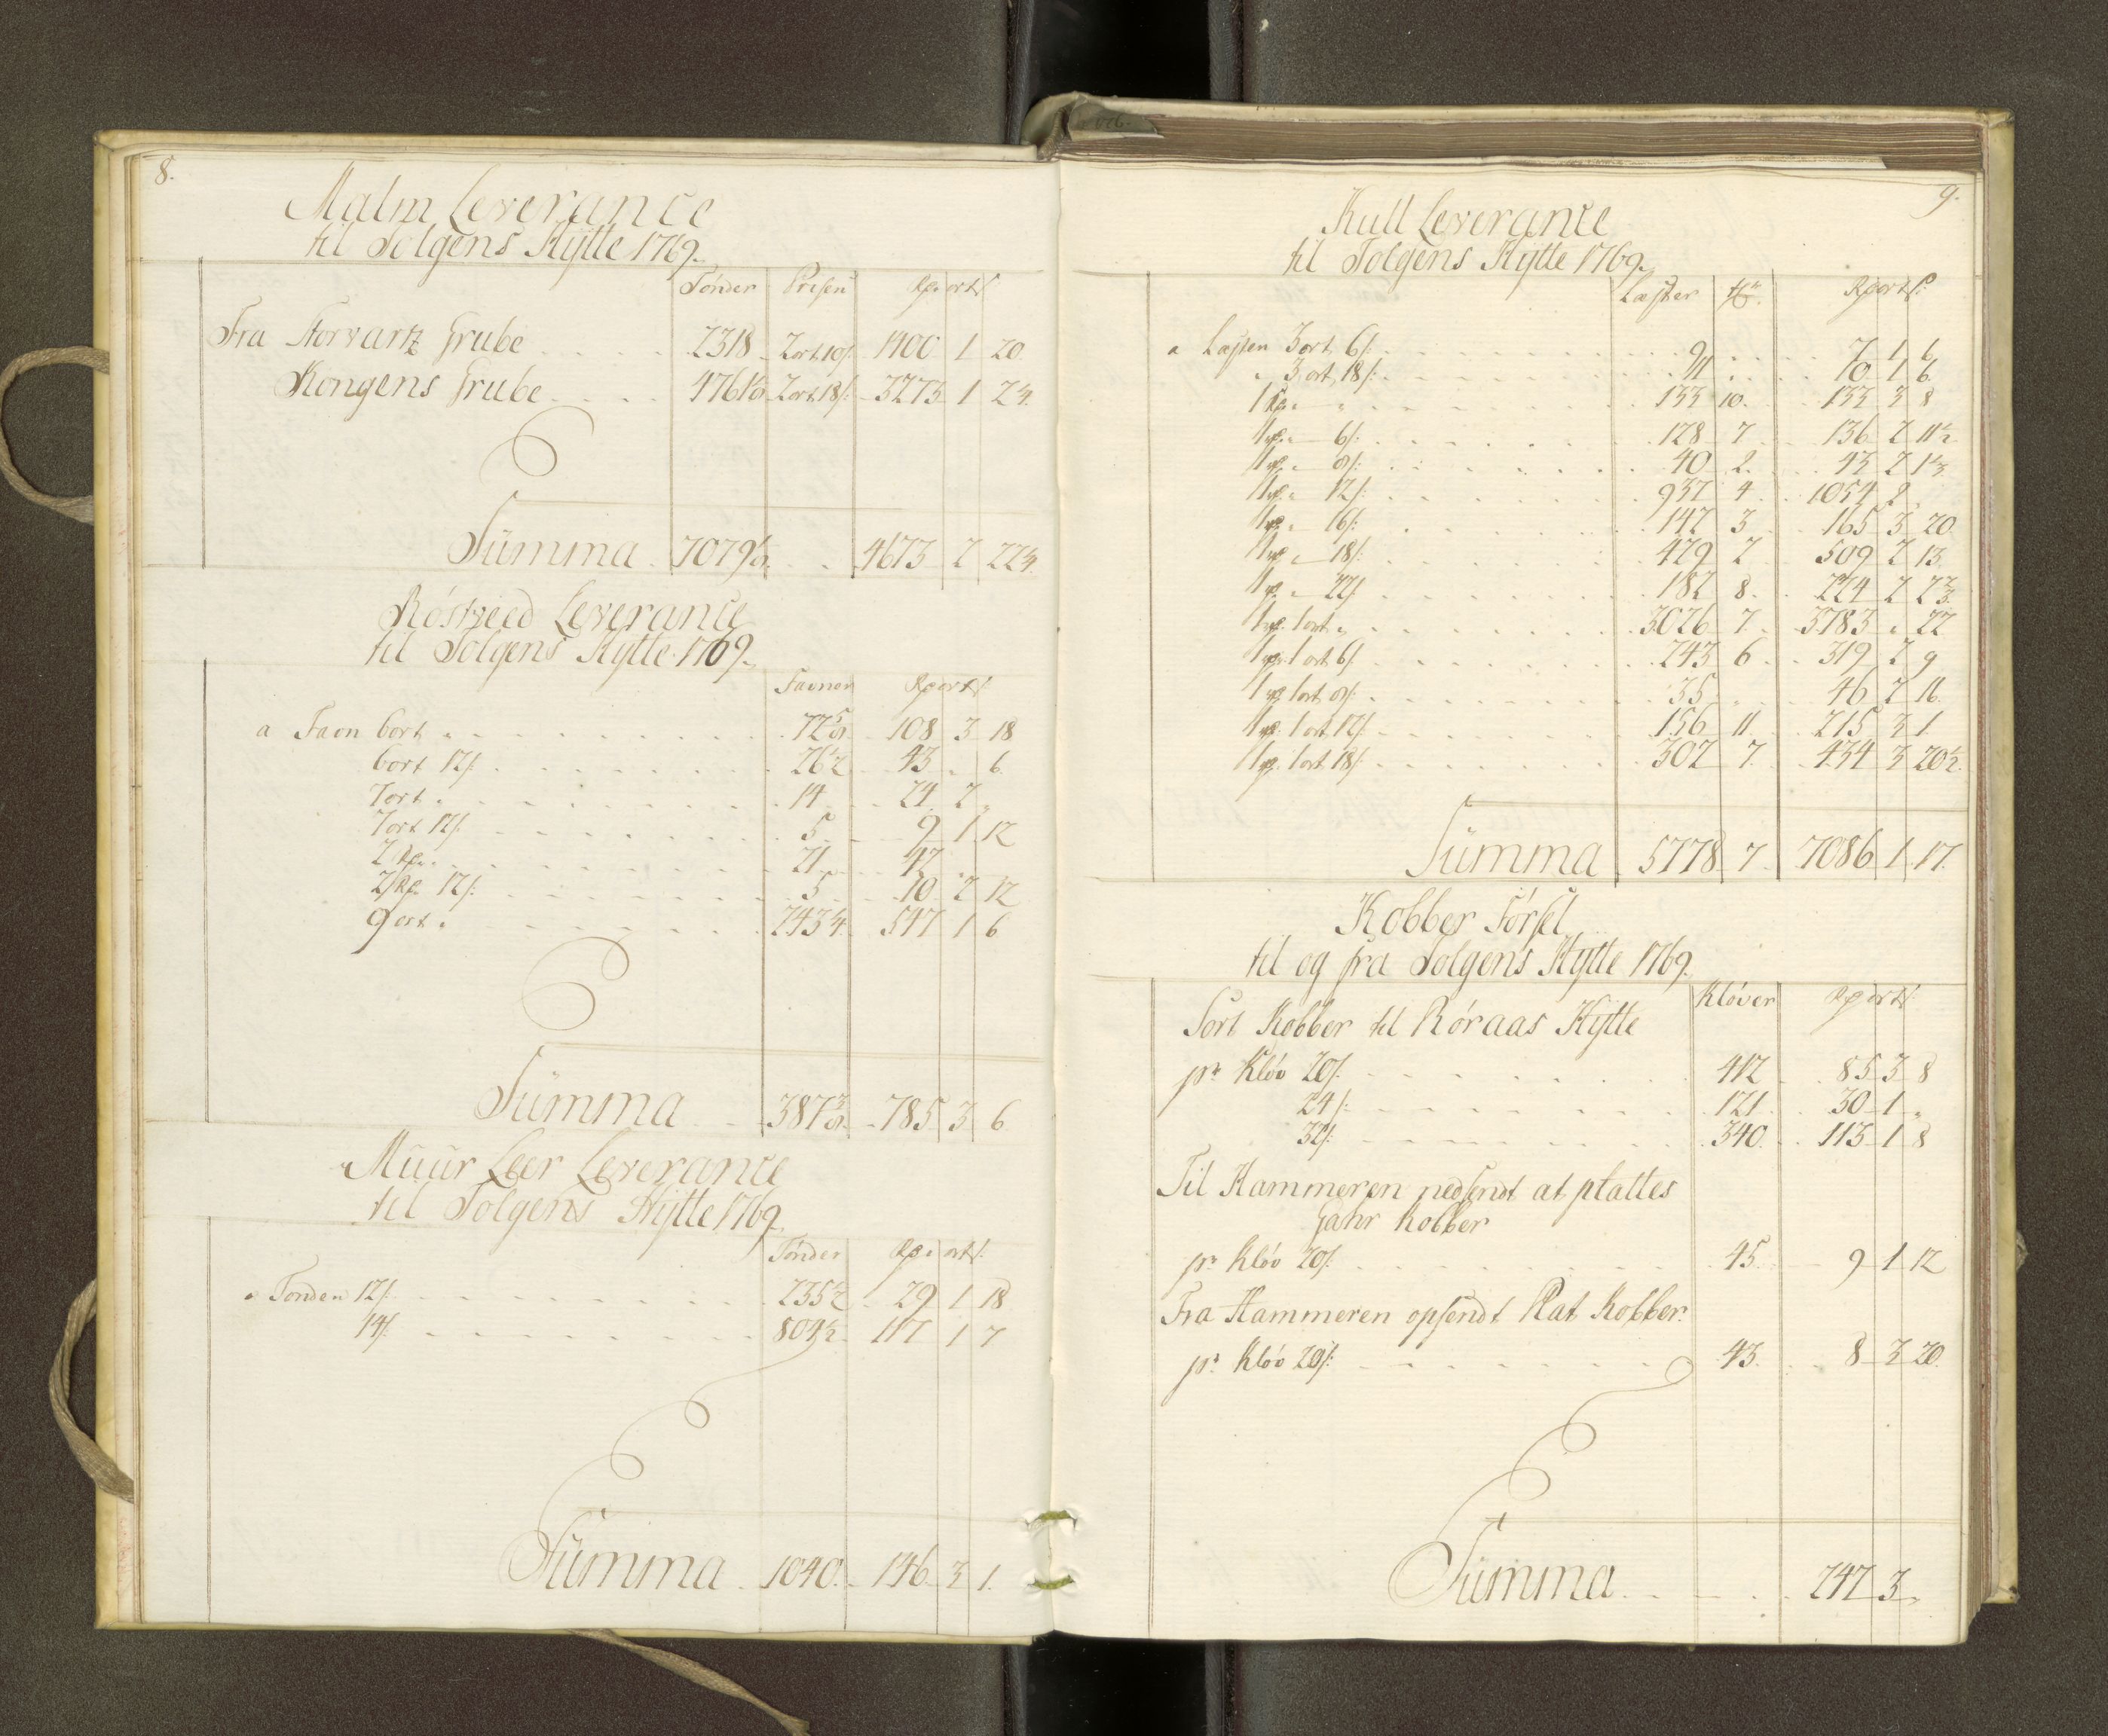 8.
Malm Leverance
til Tolgens Hÿtte 1769.
Tönder Prisen Rp. ort ſ.
Fra Storvartz Grube 2318 2 ort 10 ſ. 1400 1 20
Kongens Grube 4761 1/8 2 ort 18 ſ. 3273 1 2 1/4
Sümma 7079 1/8 4673 2 22 1/4
Röstveed Leverance
til Tolgens Hÿtte 1769.
Favner Rp ort ſ
a Favn 6 ort „ 72 5/8 108 3 18
6 ort 12 ſ. 26 1/2 43 „ 6
7 ort „ 14 24 2 „
7 ort 12 ſ. 5 9 1 12
2 Rp. „ 21 42
2 Rp. 12 ſ. 5 10 2 12
9 ort „ 243 1/4 547 1 6
Sümma 387 3/8 785 3 6
Müür Leer Leverance
til Tolgens Hÿtte 1769.
Tönder Rp. ort ſ.
a Tönden 12 ſ. 235 1/2 29 1 18
14 ſ. 804 1/2 117 1 7
Sümma 1040 146 3 1.
9.
Kull Leverance
til Tolgens Hÿtte 1769.
Læster Rp ort ſ.
a Læsten 3 ort 6 ſ. 9 7 1 6
„ 3 ort 18 ſ. 11 10 1 6
1 Rp. „ „ 133 10 133 3 8
1 Rp. „ 6 ſ. 128 7 136 2 11 1/2
1 Rp. „ 8 ſ. 40 2 43 2 1 1/3
1 Rp. „ 12 ſ. 937 4 1054 2
1 Rp. „ 16 ſ. 142 3 165 3 20
1 Rp. „ 18 ſ. 429 2 509 2 13
1 Rp. „ 22 ſ. 182 8 224 2 2 2/3
1 Rp. 1 ort „ 3026 7 3783 „ 22
1 Rp. 1 ort 6 ſ. 243 6 319 2 9
1 Rp. 1 ort 8 ſ. 35 46 2 16
1 Rp. 1 ort 12 ſ. 156 11 215 3 1
1 Rp. 1 ort 18 ſ. 302 7 434 3 20 1/2
Sümma 5778 7 7086 1 17.
Kobber Förſel
til og fra Tolgens Hÿtte 1769.
Klöver Rp ort ſ.
Sort Kobber til Röraas Hÿtte
pr. Klöv 20 ſ. 412 85 3 8
24 ſ. 121 30 1 „
32 ſ. 340 113 1 8
Til Hammeren nedſendt at plattes
Gahr Kobber
pr. Klöv 20 ſ. 45 9 1 12
Fra Hammeren opſendt Plat Kobber.
pr. Klöv 20 ſ. 43 8 3 20
Sümma 247 3 „